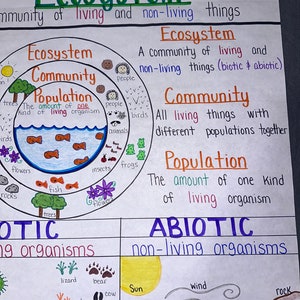 Ecosystems
community of living and non-living things
Ecosystem
Community
Population
The amount of one
kind of living organism
people
trees
birds
animals
frogs
insects
fish
flowers
rocks
trees
Ecosystem
A community of living and
non-living things (biotic & abiotic)
Community
All living things with
different populations together
Population
The amount of one kind
of living organism
OTIC
ABIOTIC
ng organisms
non-living organisms
lizard
bear
cow
Sun
wind
rock